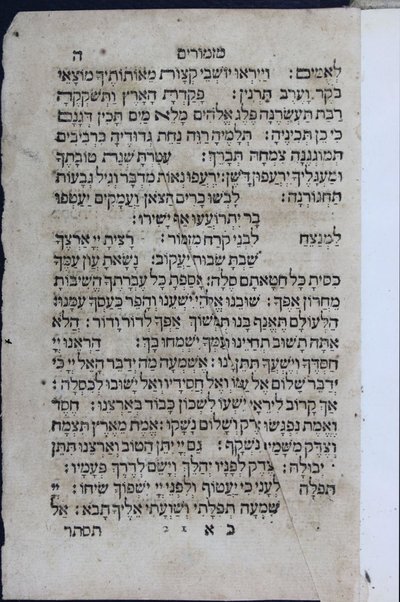 מזמורים ה
לאמים: וייראו יושבי קצוות מאותותיך מוצאי
בקר וערב תרנין: פקדת הארץ ותשקקה
רבת תעשרנה פלג אלהים מלא מים תכין דגנם
כי כן תכיניה: תלמיה רוה נחת גדודיה ברביבים
תמוגגנה צמחה תברך: עטרת שנת טובתך
ומעגליך ירעפון דשן: ירעפו נאות מדבר וגיל גבעות
תחגורנה: לבשו כרים הצאן ועמקים יעטפו
בר יתרועעו אף ישירו:
למנצח לבני קרח מזמור: רצית יי ארצך
שבת שבות יעקוב: נשאת עון עמך
כסית כל חטאתם סלה: אספת כל עברתך השיבות
מחרון אפך: שובנו אלהי ישענו והפר כעסך עמנו:
הלעולם תאנף בנו תמשוך אפך לדור ודור: הלא
אתה תשוב תחיינו ועמך ישמחו בך: הראנו יי
חסדך וישעך תתן לנו: אשמעה מה ידבר האל יי כי
ידבר שלום אל עמו ואל חסידיו ואל ישובו לכסלה:
אך קרוב ליראיו ישעו לשכון כבוד בארצנו: חסד
ואמת נפגשו צדק ושלום נשקו: אמת מארץ תצמח
וצדק משמים נשקף: גם יי יתן הטוב וארצנו תתן
יבולה: צדק לפניו יהלך וישם לדרך פעמיו:
תפלה לעני כי יעטוף ולפני יי ישפוך שיחו: יי
שמעה תפלתי ושועתי אליך תבא: אל
ב א תסתר